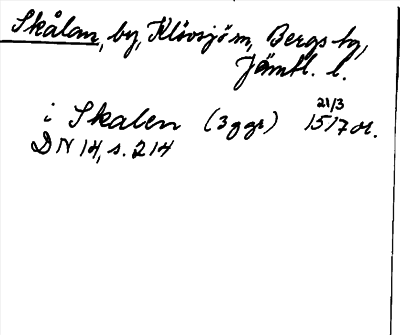 Skålan, by, Klövsjö sn, Bergs tg,
Jämtl. l.
i Skalen (3 ggr) 21/3 1517 or.
DN 14, s. 214